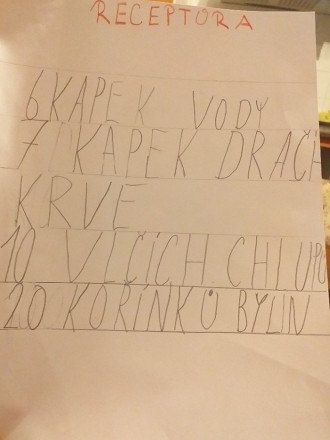 RECEPTORA
6 KAPEK VODY
7 KAPEK DRAČÍ
KRVE
10 VLČÍCH CHLUPŮ
20 KOŘÍNKŮ BYLIN